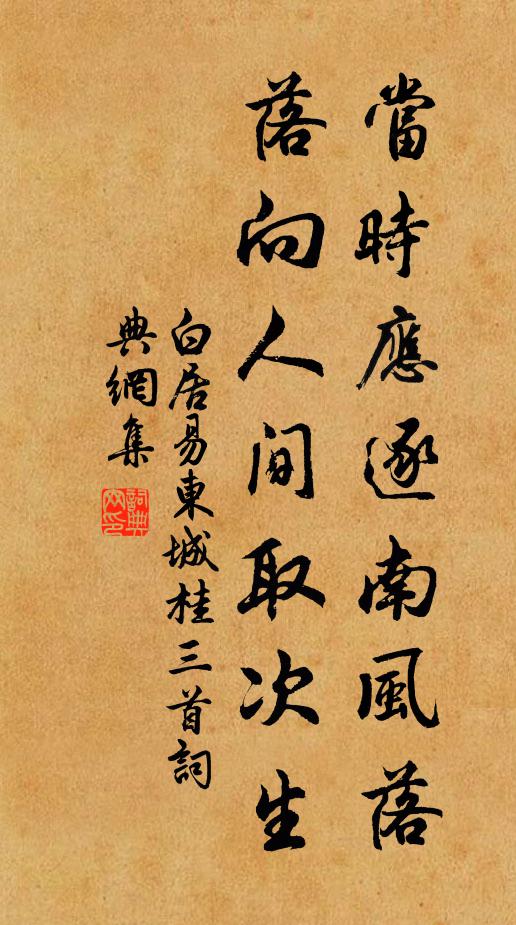 當時應逐南風落
落向人間取次生
白居易東城桂三首詞
典網集
詞典
网印